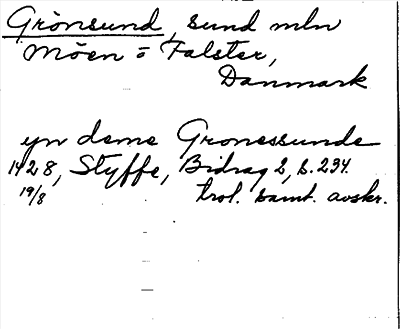 Grönsund, sund mln
Möen o Falster,
Danmark
yn deme Gronessunde
1428, Styffe, Bidrag 2, s. 234.
19/8 trol. samt. avskr.